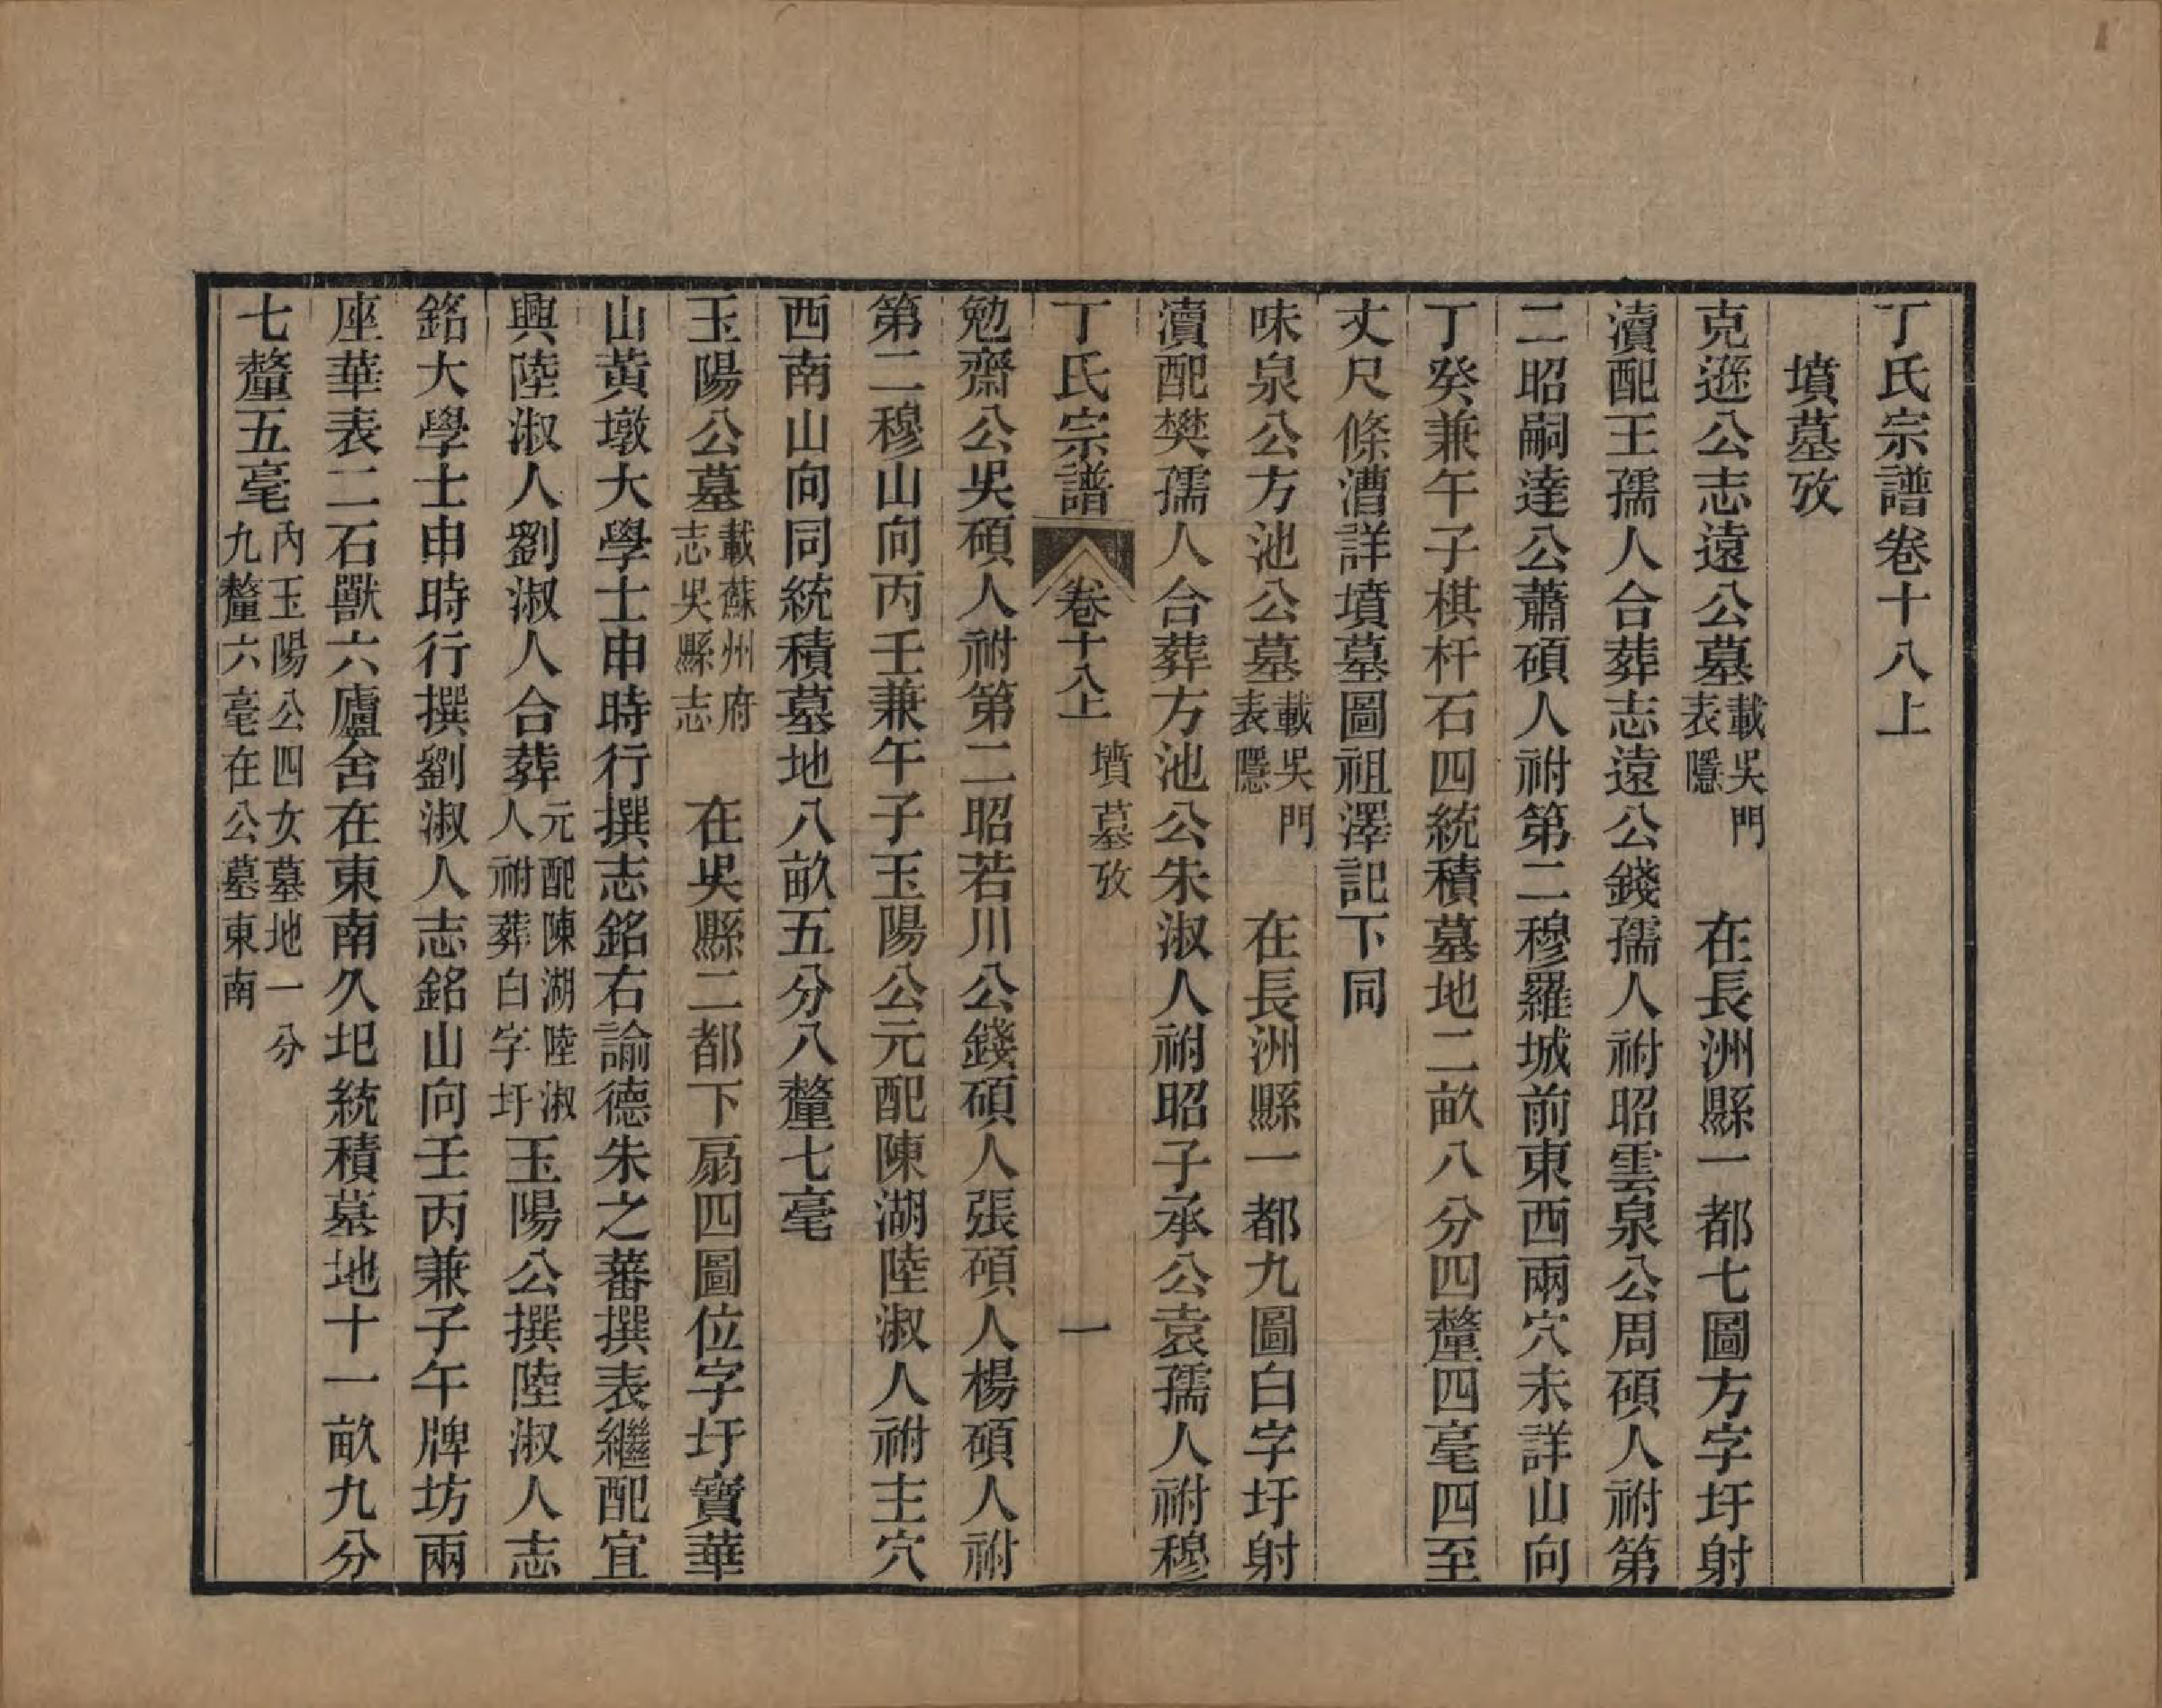 丁氏宗譜卷十八上
墳墓攷
克遜公志遠公墓載吳門表隱 在長洲縣一都七圖方字圩射
瀆配王孺人合葬志遠公錢孺人祔昭雲泉公周碩人祔第
二昭嗣達公蕭碩人祔第二穆羅城前東西兩穴未詳山向
丁癸兼午子棋杆石四統積墓地二畝八分四釐四毫四至
丈尺條漕詳墳墓圖祖澤記下同
味泉公方池公墓載吳門表隱 在長洲縣一都九圖白字圩射
瀆配樊孺人合葬方池公朱淑人祔昭子承公袁孺人祔穆
丁氏宗譜 卷十八上 墳墓攷 一
勉齋公吳碩人祔第二昭若川公錢碩人張碩人楊碩人祔
第二穆山向丙壬兼午子玉陽公元配陳湖陸淑人祔主穴
西南山向同統積墓地八畝五分八釐七毫
玉陽公墓載蘇州府志吳縣志 在吳縣二都下扇四圖位字圩寶華
山黃墩大學士申時行撰志銘右諭德朱之蕃撰表繼配宜
興陸淑人劉淑人合葬元配陳湖陸淑人祔葬白字圩玉陽公撰陸淑人志
銘大學士申時行撰劉淑人志銘山向壬丙兼子午牌坊兩
座華表二石獸六廬舍在東南久圯統積墓地十一畝九分
七釐五毫內玉陽公四女墓地一分九釐六毫在公墓東南